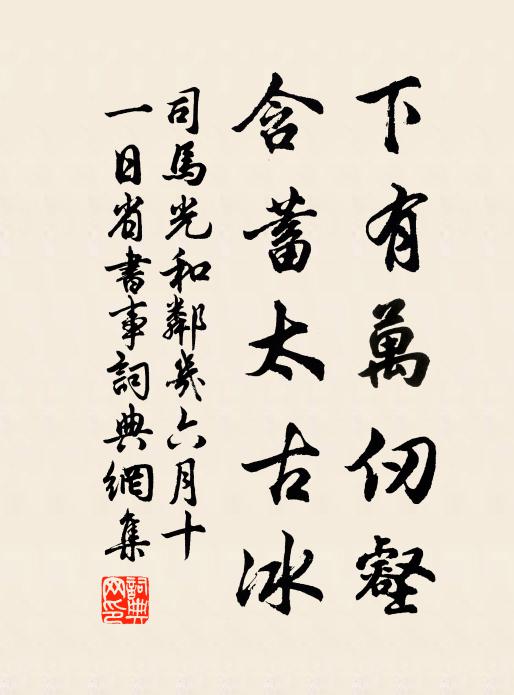 下有萬仞壑
含蓄太古冰
司馬光和鄰幾六月十
一日省書事詞典網集
詞典
网印